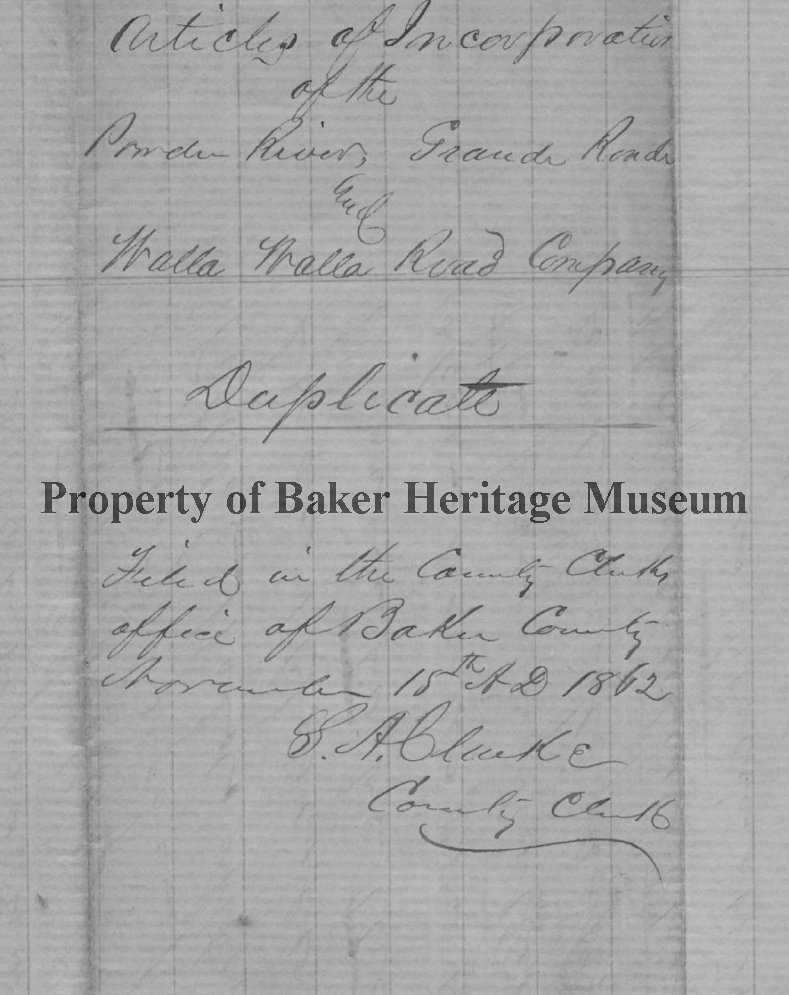 Articles of Incorporation
of the
Powder River, Grande Ronde
and
Walla Walla Road Company
Duplicate
Property of Baker Heritage Museum
Filed in the County Clerks
office of Baker County
November 15th A D 1862
S. A. Clarke
County Clerk